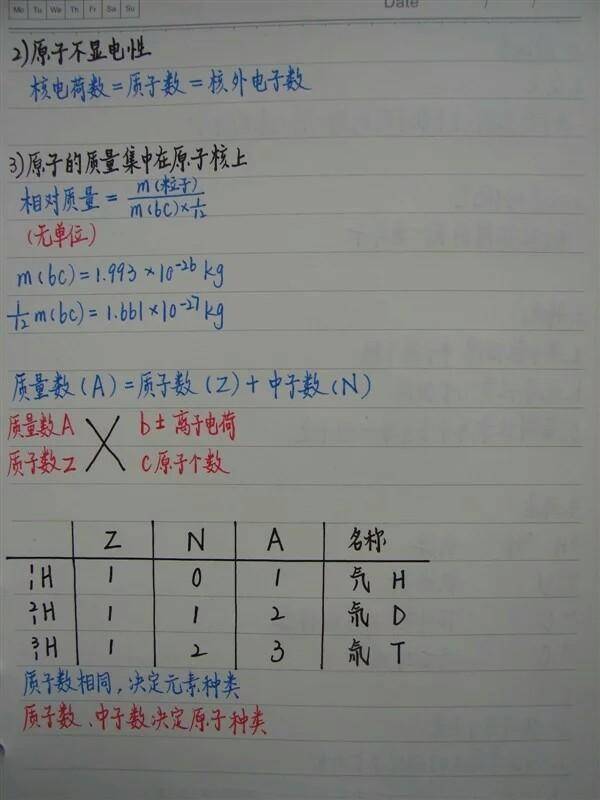 Mo Tu We Th Fr Sa Su
Date / /
2)原子不显电性
核电荷数=质子数=核外电子数
3)原子的质量集中在原子核上
相对质量= m(粒子) / m(6C)×1/12
(无单位)
m(6C)=1.993×10⁻²⁶kg
1/12 m(6C)=1.661×10⁻²⁷kg
质量数(A)=质子数(Z)+中子数(N)
质量数A X b± 离子电荷
质子数Z c原子个数
Z N A 名称
¹₁H 1 0 1 氕 H
²₁H 1 1 2 氘 D
³₁H 1 2 3 氚 T
质子数相同,决定元素种类
质子数、中子数决定原子种类